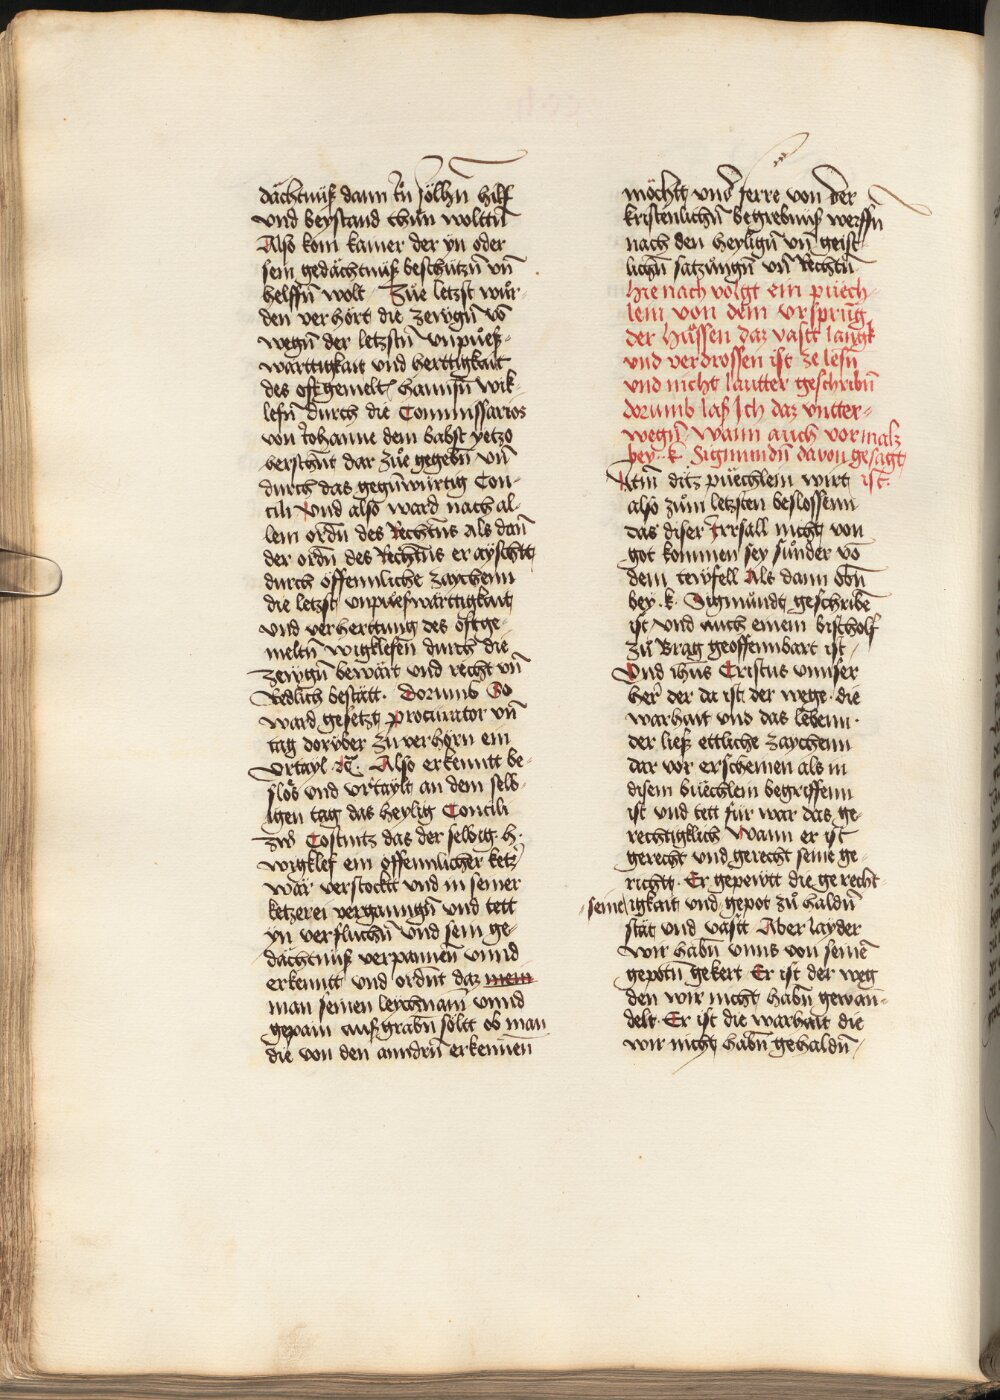 dächtnüß dann tzu sölhn̄ hilf
vnd beystand thun woltn̄
Also kom kainer der yn oder
sein gedächtnüß beschützn̄ vn̄
helffn̄ wolt Zue letzst wur-
den verhört die zewgn̄ vō
wegn̄ der letzstn̄ vnpueß-
warttigkait vnd herttigkait
des offtgemeltn̄ hannsn̄ wik-
lefn̄ durch die Commissarios
von Johanne dem babst yetzo
darzuͦ gegebn̄ vn̄
durch das gegn̄würtig Con-
cili Vnd also ward nach al-
lem ordn̄ des Rechtens als dan̄
der ordn̄ des Rechtens erayscht
durch öffennliche zaychenn
die letzst vnpuefwarttigkait
vnd verherttung des oftge-
meltn̄ wigklefen durch die
zewgn̄ bewärt vnd recht vn̄
Redlich bestätt. Dorumb So
ward gesetzt procurator vn̄
tag dorvber zu verhörn ein
Vrtayl Also erkenntt be-
slos vnd vrtaylt an dem selb-
igen tag das heylig Concili
zw Costnitz das der selbig .h.
wigklef ein offennlicher ketz
wär verstockt vnd in seiner
ketzerei verganngn̄ vnd tett
yn verfluchn̄ vnd sein ge-
dächtnüß verpannen vnnd
erkenntt vnd ordnt daz mein
man seinen leychnam vnnd
gepain außgrabn̄ söltt ob man
die von den anndrn̄ erkennen
möcht vnd ferre von der
kristenlichn̄ begrebnüß werffn̄
nach den heylign̄ vn̄ geist-
lichn̄ satzungn̄ vn̄ Rechtn̄
Hie nach volgt ein puech-
lein von dem vrsprung
der Hussen daz vastt langk
vnd verdrossen ist ze lesn̄
vnd nicht lautter geschribn̄
dorumb laß Ich daz vntter-
wegn̄ Wann auch vormalz
bey .k. Sigmundn̄ davon gesagt
ist.
ditz puechlein wirt
also zum letzsten beslossenn
das diser Irrsall nicht von
got kommen sey sunder vō
dem tewfell Als dann obn̄
bey .k. Sigmundt geschribē
ist vnd auch einem bischolf
zu Brag geoffennbart ist
Vnd ihūs Cristus vnnser
her der da ist der wege. die
warhait vnd das lebenn.
der ließ ettliche zaychenn
dar vor erscheinen als in
disem buechlem begriffenn
ist vnd tett für war das ge-
rechtigklich Wann er ist
gerecht vnd gerecht seine ge-
richtt. Er gepewtt die gerecht-
seine igkait vnd gepot zu haldn̄
stät vnd västt Aber layder
wir habn̄ vnns von seinē
gepotn̄ gekert Er ist der weg
den wir nicht habn̄ gewan-
delt. Er ist die warhait die
wir nicht habn̄ gehaldn̄